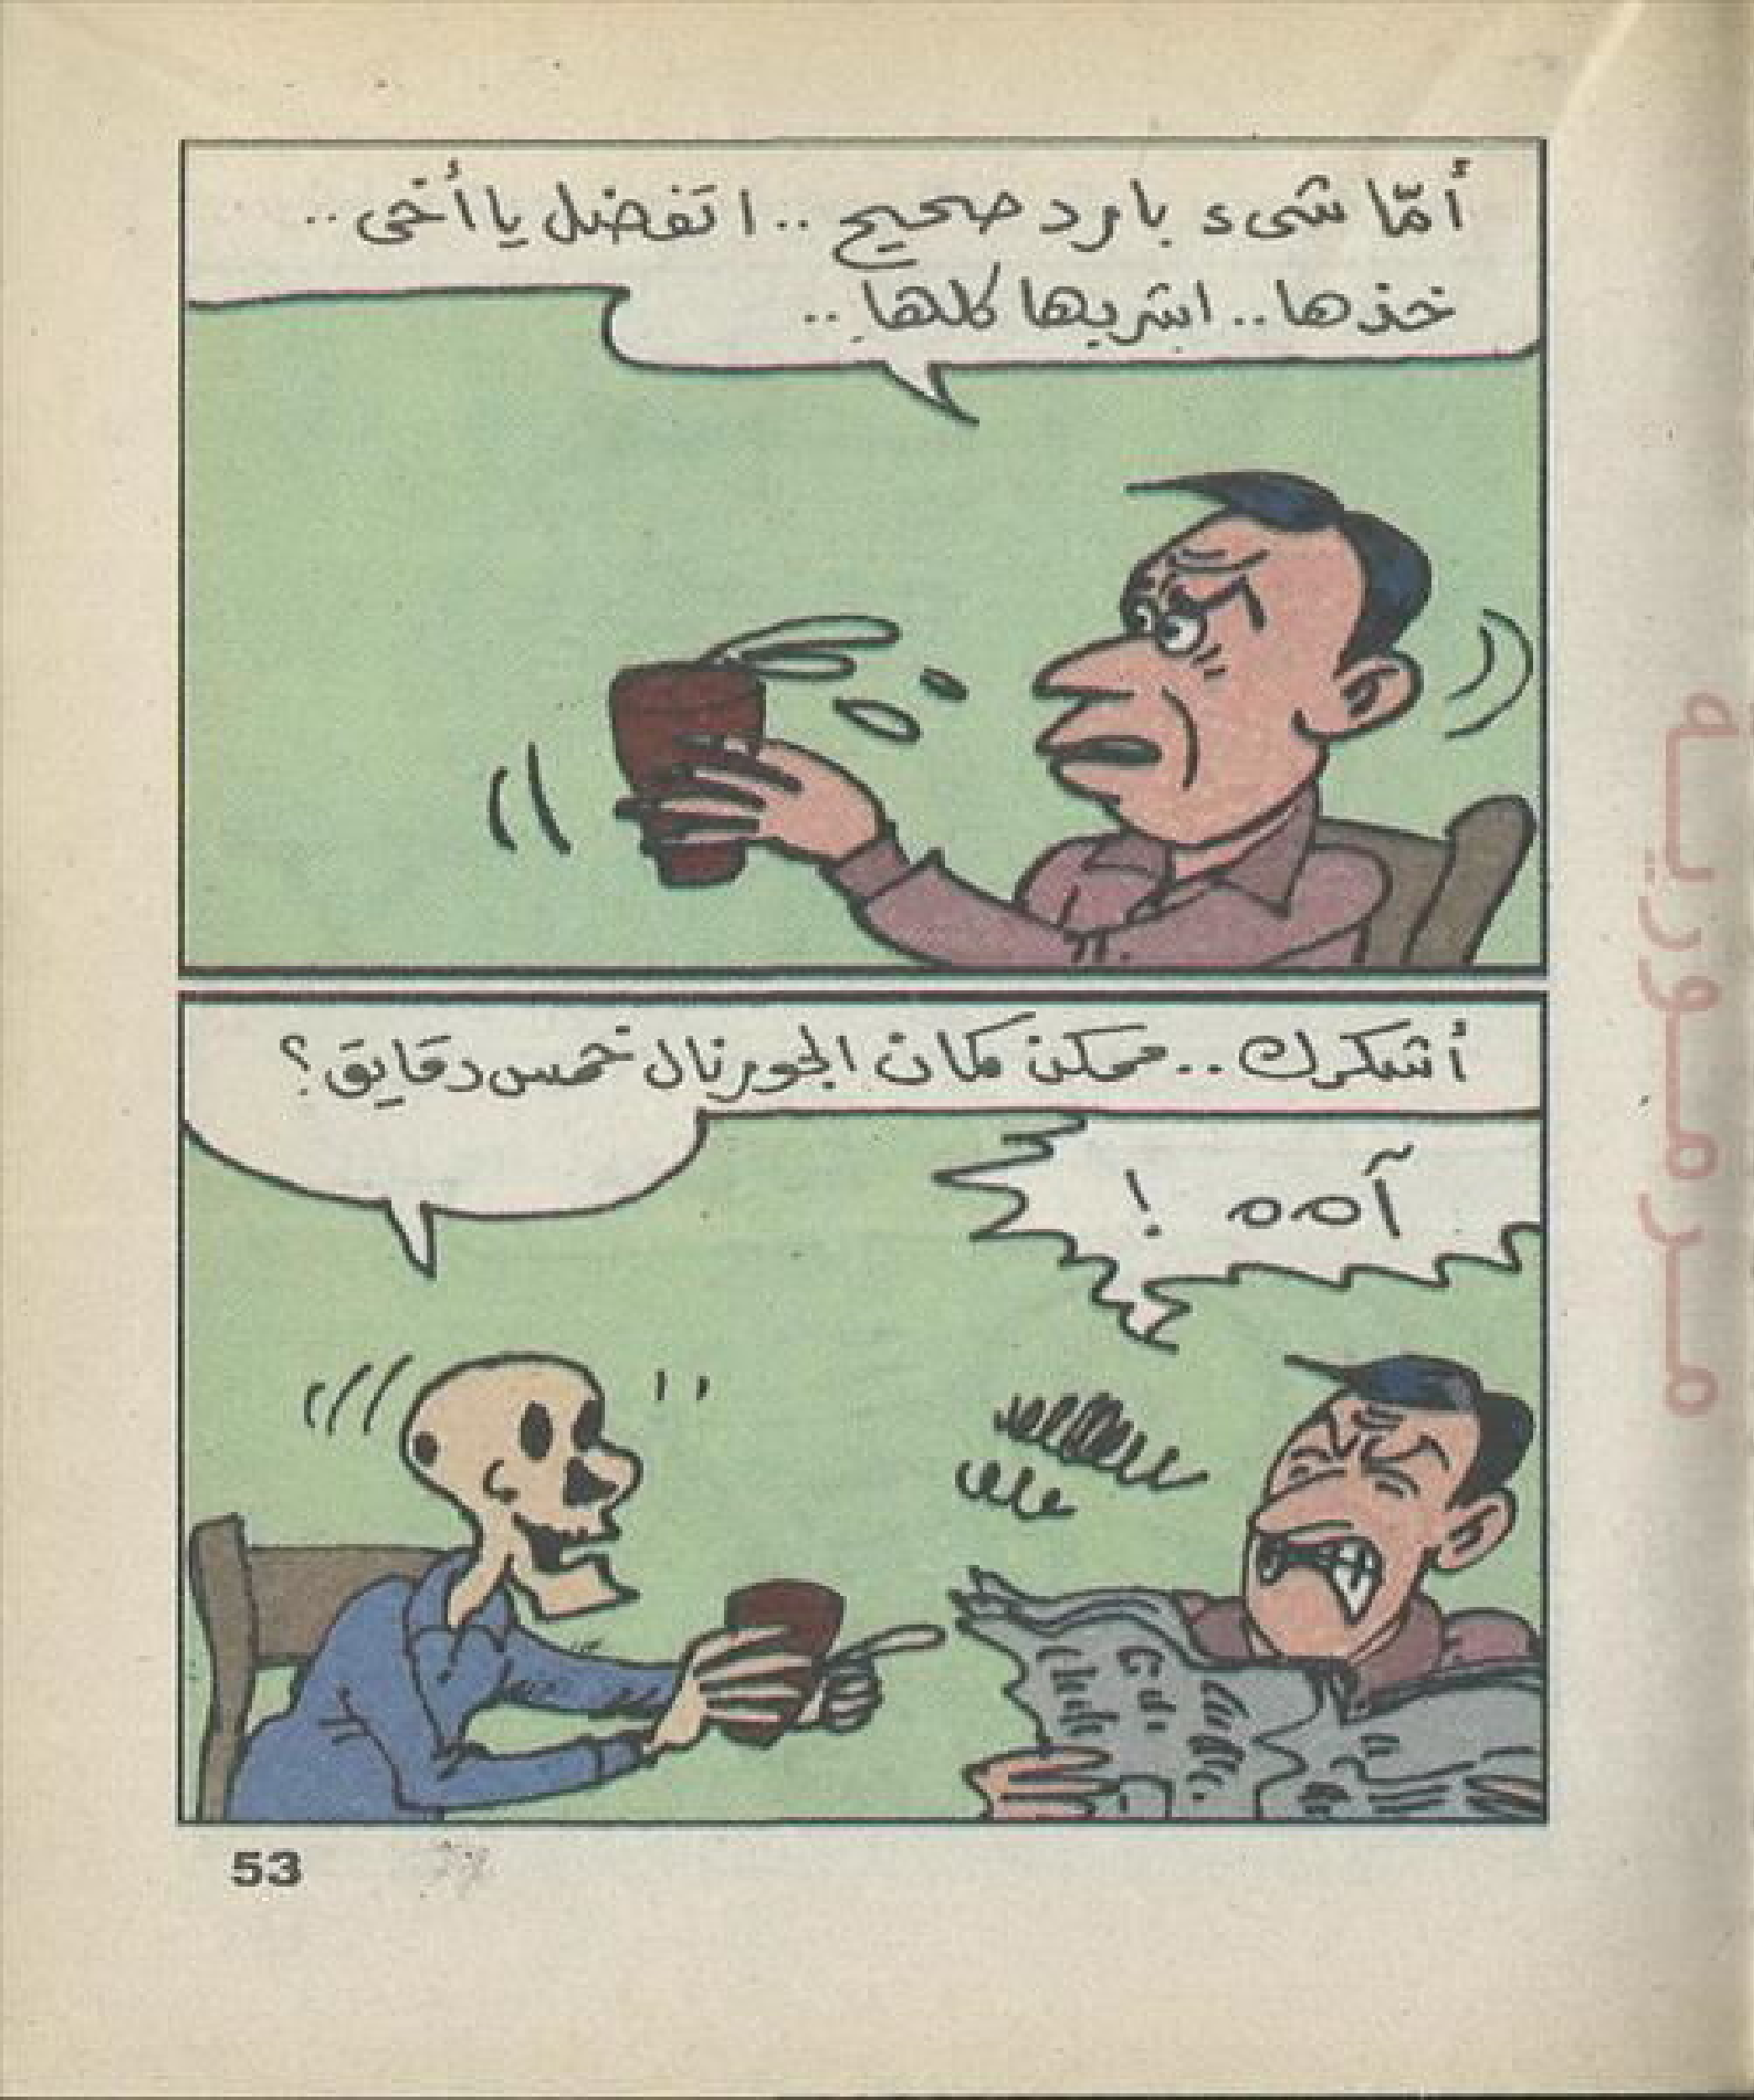 أمّا شىء بارد صحيح .. اتفضل يا أخى ..
خذها .. اشربها كلها ..
أشكرك .. ممكن كمان الجورنال خمس دقايق ؟
آه‍ه‍ه !
53